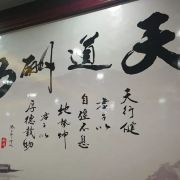 天道酬
天行健
君子以
自强不息
地势坤
君子以
厚德载物